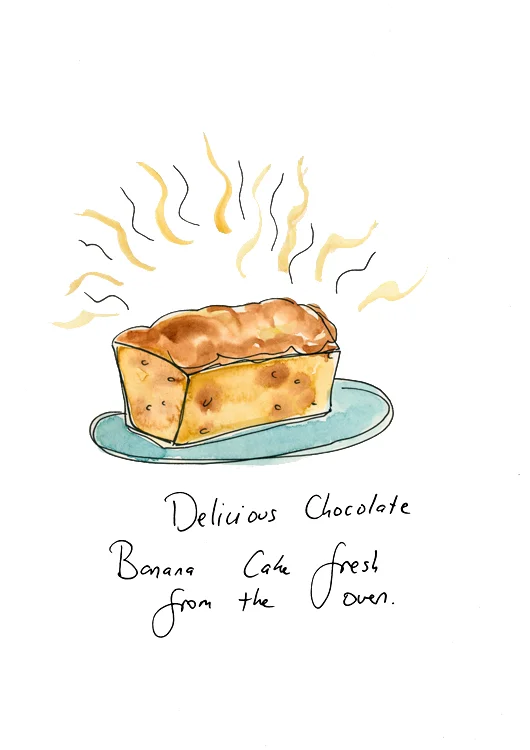 Delicious Chocolate
Banana Cake fresh
from the oven.